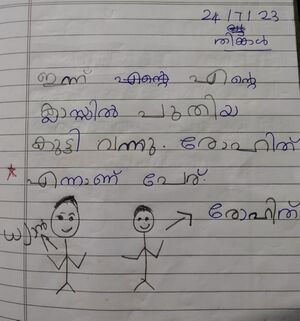 24/7/23
തിങ്കൾ
ഇന്ന് എന്റെ
ക്ലാസ്സിൽ പുതിയ
കുട്ടി വന്നു. രോഹിത്
എന്നാണ് പേര്.
രോഹിത്